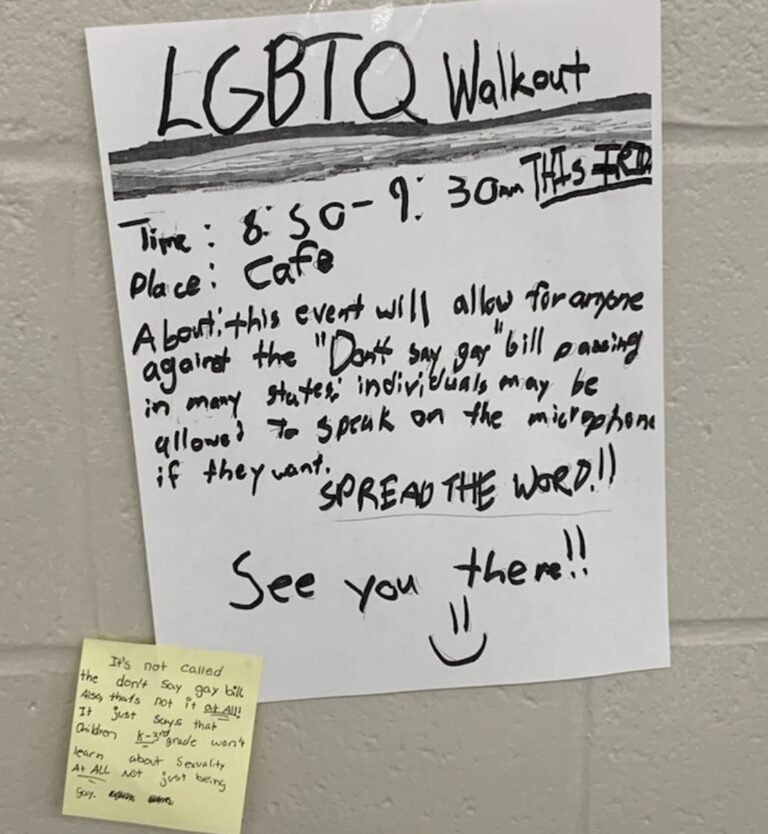 LGBTQ Walkout
Time: 8:50-9:30am THIS FRI.
Place: Cafe
About: this event will allow for anyone
against the "Don't say gay" bill passing
in many states; individuals may be
allowed to speak on the microphone
if they want.
SPREAD THE WORD!!
See you there!!
It's not called
the don't say gay bill
Also, that's not it at All!
It just says that
Children K-3rd grade won't
learn about Sexuality
At ALL not just being
gay.